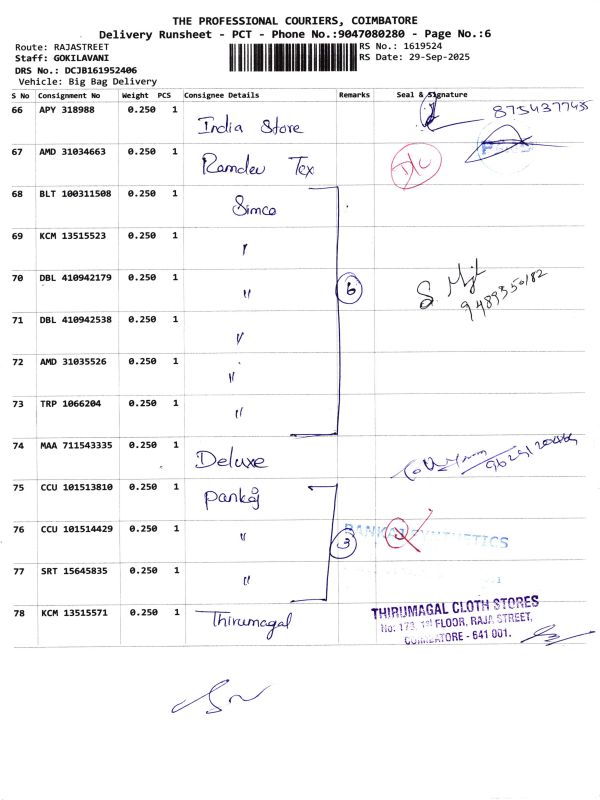 THE PROFESSIONAL COURIERS, COIMBATORE
Delivery Runsheet - PCT - Phone No.:9047080280 - Page No.:6
Route: RAJASTREET
RS No.: 1619524
Staff: GOKILAVANI
RS Date: 29-Sep-2025
DRS No.: DCJB161952406
Vehicle: Big Bag Delivery
S No Consignment No Weight PCS Consignee Details Remarks Seal & Signature
66 APY 318988 0.250 1 India Store 8754377435
67 AMD 31034663 0.250 1 Ramdev Tex D/C
68 BLT 100311508 0.250 1 Simco
69 KCM 13515523 0.250 1 "
70 DBL 410942179 0.250 1 " 6 9489350182
71 DBL 410942538 0.250 1 "
72 AMD 31035526 0.250 1 "
73 TRP 1066204 0.250 1 "
74 MAA 711543335 0.250 1 Deluxe
75 CCU 101513810 0.250 1 Pankaj
76 CCU 101514429 0.250 1 " 3 PANKAJ SYNTHETICS
77 SRT 15645835 0.250 1 "
78 KCM 13515571 0.250 1 Thirumagal THIRUMAGAL CLOTH STORES
No: 173, 1st FLOOR, RAJA STREET,
COIMBATORE - 641 001.